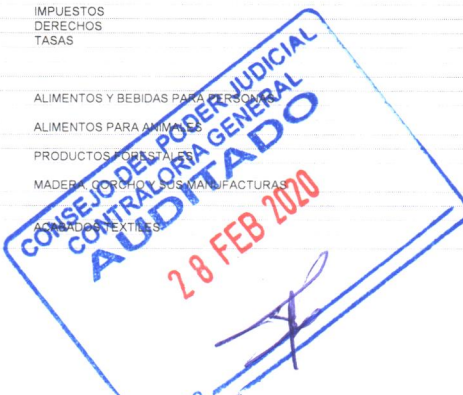 IMPUESTOS
DERECHOS
TASAS
ALIMENTOS Y BEBIDAS PARA PERSONAS
ALIMENTOS PARA ANIMALES
PRODUCTOS FORESTALES
MADERA, CORCHO Y SUS MANUFACTURAS
ACABADOS TEXTILES
CONSEJO DEL PODER JUDICIAL
CONTRALORIA GENERAL
AUDITADO
28 FEB 2020